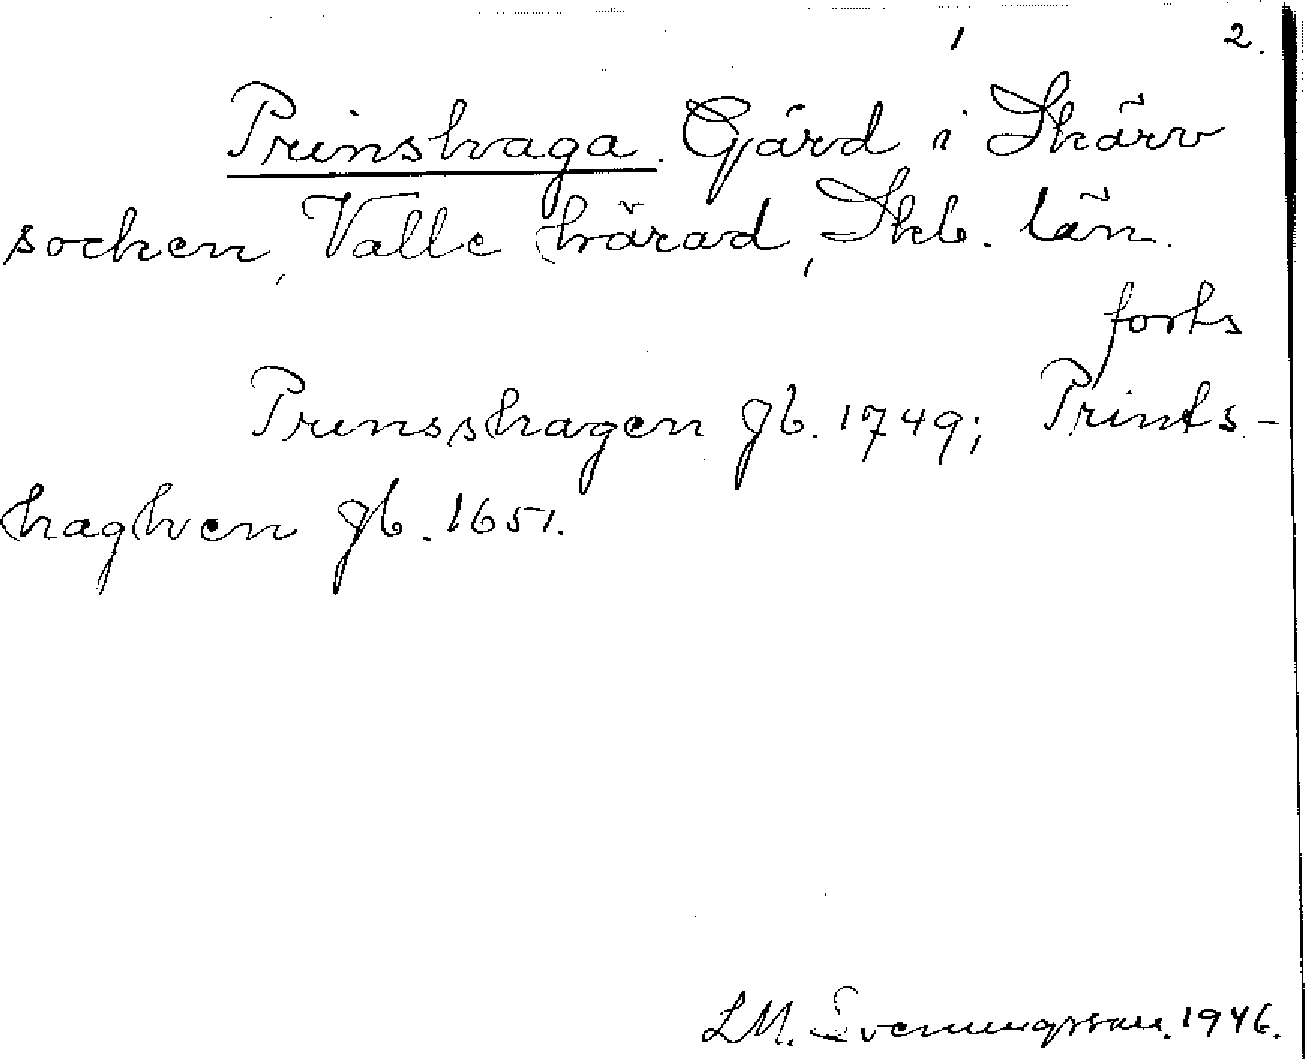 1 2.
Prinshaga. Gård i Skärv
socken, Valle härad, Skb. län.
forts
Prinsshagen jb. 1749; Prints-
haghen jb. 1651.
LM. Svenungsson. 1946.